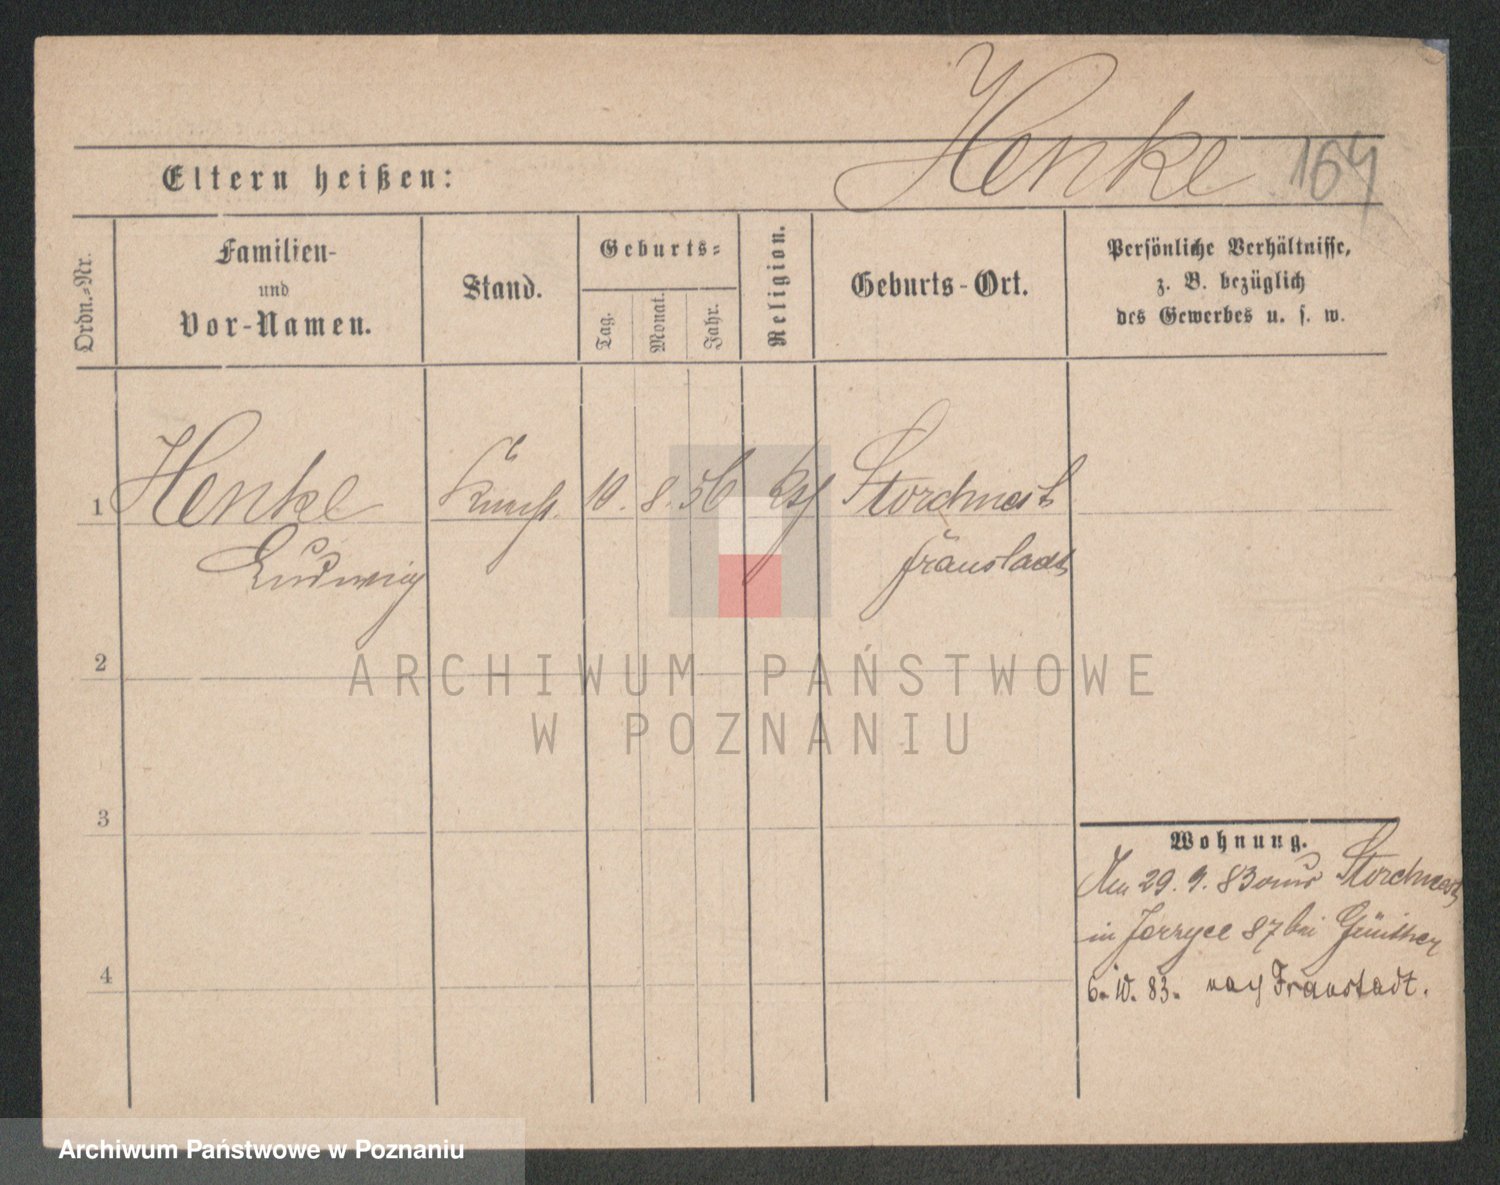 Henke
164
Eltern heißen:
Ordn.-Nr.
Familien-
und
Vor-Namen.
Stand.
Geburts-
Tag.
Monat.
Jahr.
Religion.
Geburts-Ort.
Persönliche Verhältnisse,
z. B. bezüglich
des Gewerbes u. s. w.
1 Henke 10. 8. 56 Storchnest
Ludwig Fraustadt
2
3
4
ARCHIWUM PAŃSTWOWE
W POZNANIU
Wohnung.
29. 9. 83 aus Storchnest
in Jerzyce 87 bei Günther
6. 10. 83. nach Fraustadt.
Archiwum Państwowe w Poznaniu